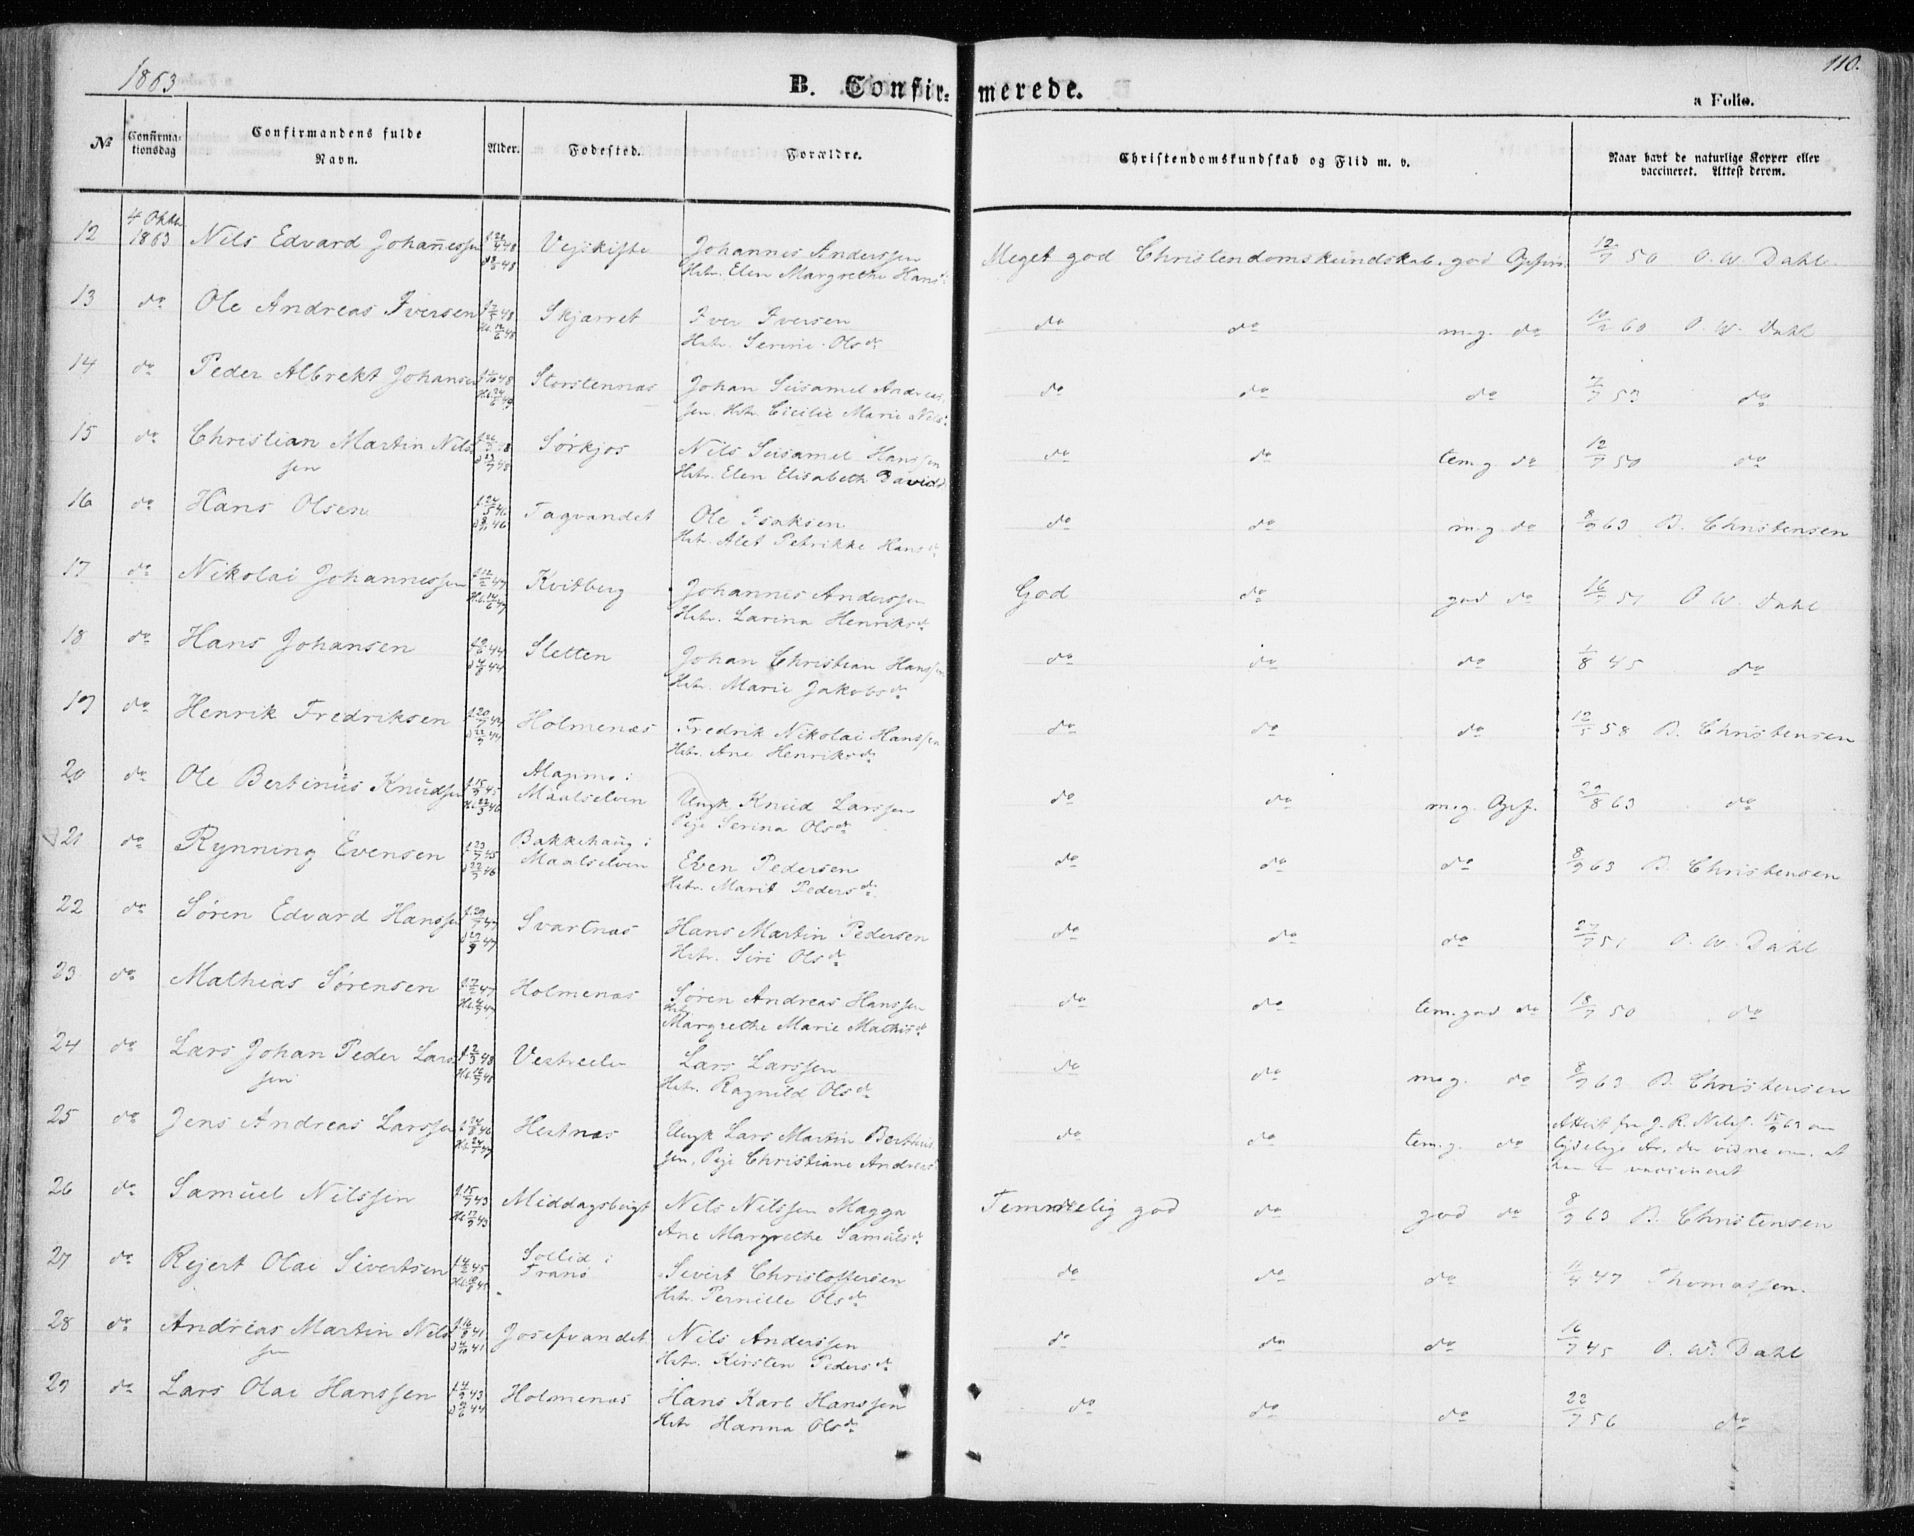 1863
B. Confirmerede.
110.
a Folio.
No
Confirmationsdag
Confirmandens fulde Navn.
Alder.
Fødested.
Forældre.
Christendomskundskab og Flid m. v.
Naar havt de naturlige Kopper eller vaccineret. Attest derom.
12 4 Oktb. 1863 Nils Edvard Johannessen Vejskifte Johannes Anderssen Meget god Christendomskundskab. god 12/7 50 O. W. Dahl
Hstr. Elen Margrethe Hansd.
13 do Ole Andreas Iversen Skjærret Iver Iversen do do m.g. do 60 O. W. Dahl
Hstr. Serine Olsd.
14 do Peder Albrekt Johansen Storstennæs Johan Andreas do do do 7/7 53 do
sen. Hstr. Cicilie Marie Nilsd.
15 do Christian Martin Nils Sørkjos Nils Hanssen do do tem.g do 12/7 50 do
sen Hstr. Elen Elisabeth Davidsd.
16 do Hans Olsen Tagvandet Ole Isaksen do do m.g do 8/9 63 B. Christensen
Hstr. Alet Petrikke Hansd.
17 do Nikolai Johannessen Kvitberg Johannes Anderssen God do god do 16/7 51 O. W. Dahl
Hstr. Larina Henriksd.
18 do Hans Johansen Sletten Johan Christian Hanssen do do do 1/8 45 do
Hstr. Marie Jakobsd.
19 do Henrik Fredriksen Holmenæs Fredrik Nikolai Hanssen do do do 12/5 58 B. Christensen
Hstr. Ane Henriksd.
20 do Ole Bertinus Knudsen Moen i Maalselven Ungk Knud Larssen do do m.g. Opf. 22/8 63 do
Pige Serina Olsd.
21 do Rynning Evensen Bakkehaug i Maalselven Even Pedersen do do do 8/9 63 B. Christensen
Hstr. Marit Pedersd.
22 do Søren Edvard Hanssen Svartnæs Hans Martin Pedersen do do do 27/7 51 O. W. Dahl
Hstr. Siri Olsd.
23 do Mathias Sørensen Holmenæs Søren Andreas Hanssen do do tem. god do 18/7 50 do
Hstr. Margrethe Marie Mathisd.
24 do Lars Johan Peder Lars Vestreelv Lars Larssen do do m.g. do 8/9 63 B. Christensen
sen Hstr. Ragnild Olsd.
25 do Jens Andreas Larssen Hestnæs Ungk Lars Martin Berthus do do tem.g. do Attest fra J. R. Nilss. 15/9 63 om
sen, Pige Christiane Andreas tydelige Ar, der vidne om, at
han er vaccineret
26 do Samuel Nilssen Middagsbugt Nils Nilssen Magga Temmelig god do god do 8/9 63 B. Christensen
Ane Margrethe Samuelsd.
27 do Rejert Olai Sivertsen Sollid i Tranø Sivert Christoffersen do do do 11/4 47 Thomassen.
Hstr. Pernille Olsd.
28 do Andreas Martin Nils Josefvandet Nils Anderssen do do do 16/7 45 O. W. Dahl
sen Hstr. Kirsten Pedersd.
29 do Lars Olai Hanssen Holmenæs Hans Karl Hanssen do do do 22/7 56 do
Hstr Hanna Olsd.